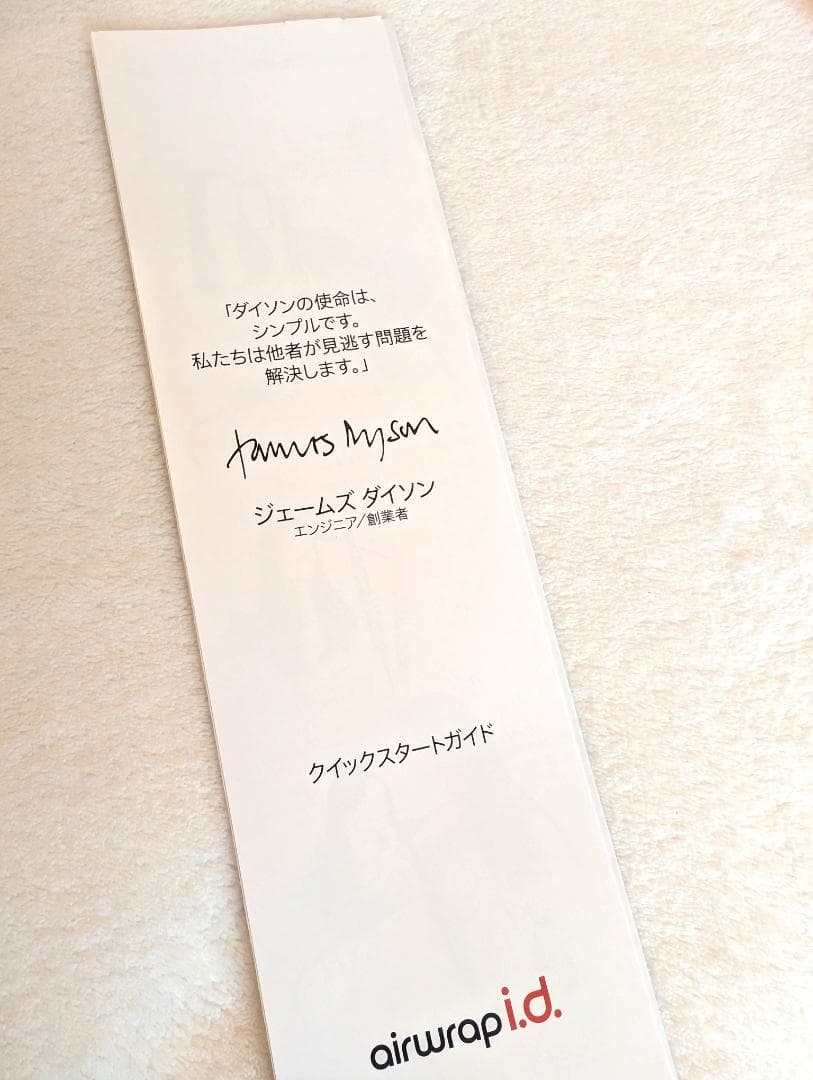 「ダイソンの使命は、
シンプルです。
私たちは他者が見逃す問題を
解決します。」
James Dyson
ジェームズ ダイソン
エンジニア/創業者
クイックスタートガイド
airwrap i.d.